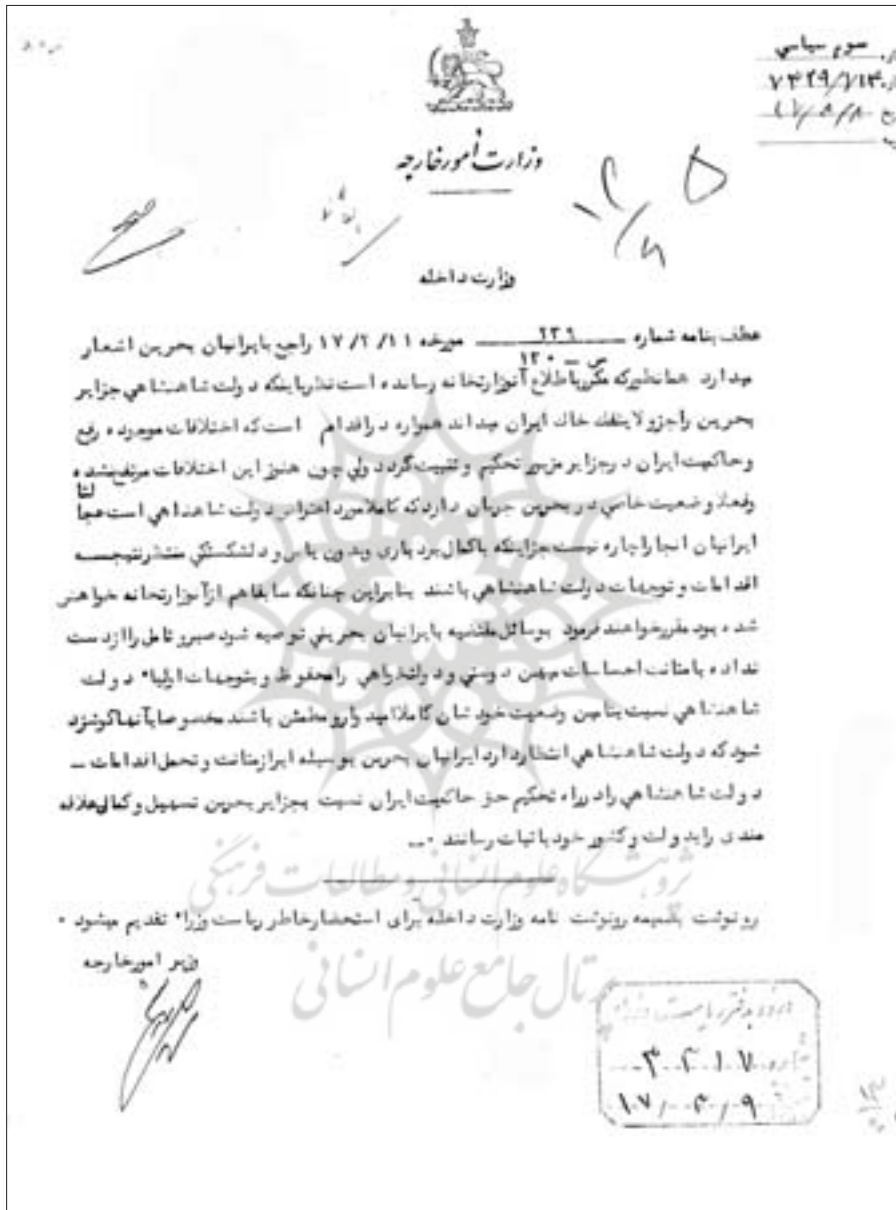 سوم سیاسی
۷۴۲۹/۷۱۴
۱۷/۸/۸
وزارت أمور خارجه
وزارت داخله
عطف بنامه شماره ۲۳۹ / س – ۱۲۰ مورخه ۱۷/۲/۱۱ راجع بایرانیان بحرین اشعار
میدارد همانطور که مکرر باطلاع آنوزارتخانه رسانده است نظر باینکه دولت شاهنشاهی جزایر
بحرین را جزو لاینفک خاک ایران میداند همواره در اقدام است که اختلافات موجوده رفع
و حاکمیت ایران در جزایر مزبور تحکیم و تثبیت گردد ولی چون هنوز این اختلافات مرتفع نشده
وفعلا وضعیت خاصی در بحرین جریان دارد که کاملا مورد اعتراض دولت شاهنشاهی است
ایرانیان انجا را چاره نیست جز اینکه باکمال بردباری وبدون یاس و دلشکستگی منتظر نتیجه
اقدامات و توجهات دولت شاهنشاهی باشند بنابراین چنانکه سابقا هم از آنوزارتخانه خواهش
شده بود مقرر خواهند فرمود بوسائل مقتضیه بایرانیان بحرینی توصیه شود صبر و تامل را از دست
نداده بامتانت احساسات میهن دوستی و دولتخواهی را محفوظ و بتوجهات اولیاء دولت
شاهنشاهی نسبت بتامین وضعیت خودشان کاملا امیدوار و مطمئن باشند مخصوصا بآنها گوشزد
شود که دولت شاهنشاهی انتظار دارد ایرانیان بحرین بوسیله ابراز متانت و تحمل اقدامات –
دولت شاهنشاهی را در راه تحکیم حق حاکمیت ایران نسبت بجزایر بحرین تسهیل و کمال علاقه
مندی را بدولت و کشور خود باثبات رسانند ۰–
پژوهشگاه علوم انسانی و مطالعات فرهنگی
رونوشت بضمیمه رونوشت نامه وزارت داخله برای استحضار خاطر ریاست وزراء تقدیم میشود ۰
وزیر امور خارجه
رتال جامع علوم انسانی
۳۲۱۷
۱۷/۳/۹